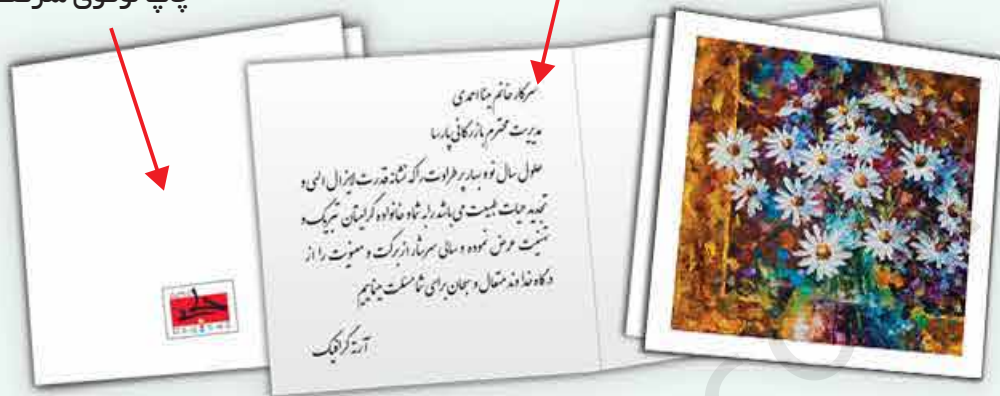 چاپ لوگوی شرکت
سرکار خانم مینا احمدی
مدیریت محترم بازرگانی پارسا
حلول سال نو و بهار پر طراوت را که نشانه قدرت لایزال الهی و
تجدید حیات طبیعت می باشد را به شما و خانواده گرامیتان تبریک و
تهنیت عرض نموده و سالی سرشار از برکت و معنویت را از
درگاه خداوند متعال و سبحان برای شما مسئلت مینماییم
آرته گرافیک